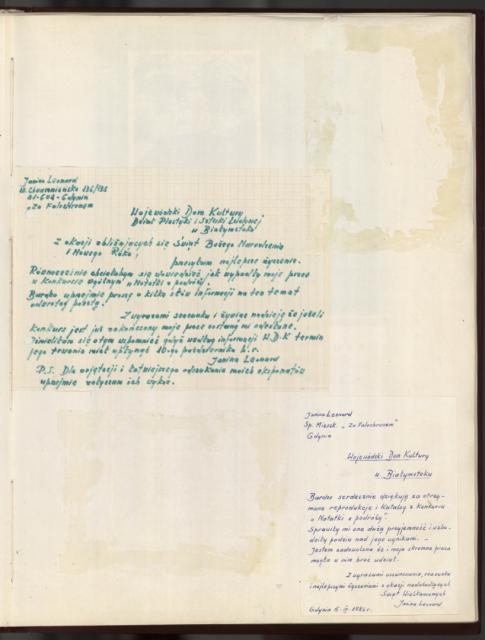 Janina Leonard
81-602 - Gdynia
"Za Falochronem
Wojewódzki Dom Kultury
Dział Plastyki i Sztuki Ludowej
w Białymstoku
Z okazji zbliżających się Świąt Bożego Narodzenia
i Nowego Roku,
przesyłam najlepsze życzenia.
Równocześnie chciałabym się dowiedzieć jak wypadły moje prace
w konkursie ogólnym "Notatki z podróży".
Bardzo uprzejmie proszę o kilka słów informacji na ten temat
odwrotną pocztą.
Z wyrazami szacunku i żywiąc nadzieję że jeżeli
konkurs jest już zakończony moje prace zostaną mi odesłane.
Ośmieliłam się o tym wspomnieć gdyż według informacji W.D.K termin
jego trwania miał upłynąć 10-go października b.r.
Janina Leonard
P.S. Dla orientacji i łatwiejszego odszukania moich eksponatów
uprzejmie załączam ich wykaz.
Janina Leonard
Sp. Mieszk. "Za Falochronem"
Gdynia
Wojewódzki Dom Kultury
w Białymstoku
Bardzo serdecznie dziękuję za otrzy-
maną reprodukcję i Katalog z Konkursu
"Notatki z podróży".
Sprawiły mi one dużą przyjemność i
podziw nad jego wynikami. -
Jestem zadowolona że i moja skromna praca
mogła w nim brać udział.
Z wyrazami uszanowania, szacunku
i najlepszymi życzeniami z okazji nadchodzących
Świąt Wielkanocnych
Janina Leonard
Gdynia